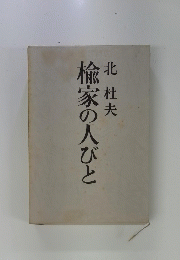 北杜夫
楡家の人びと